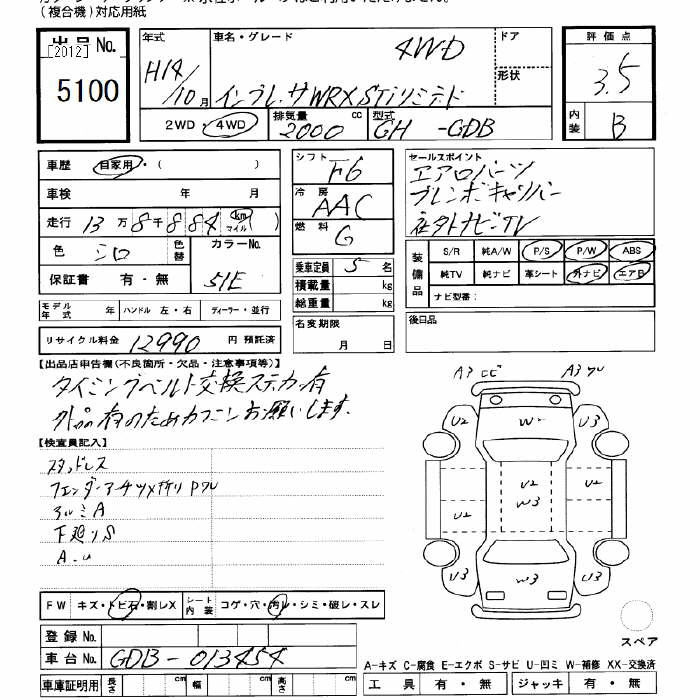 (複合機)対応用紙
出品 No.
[2012]
5100
年式
H14/10月
車名・グレード
4WD
インプレッサWRX STiリミテド
ドア
形状
評価点
3.5
内装
B
2WD・4WD
排気量
2000 cc
型式
GH -GDB
車歴 自家用・( )
車検 年 月
走行 13万8千884 km マイル ( )
色 シロ 色替
カラーNo.
51E
保証書 有・無
モデル年式 年 ハンドル 左・右 ディーラー・並行
リサイクル料金 12990 円 預託済
シフト
F6
冷房
AAC
燃料
G
乗車定員 5 名
積載量 kg
総重量 kg
名変期限
月 日
セールスポイント
エアロパーツ
ブレンボキャリパー
社外ナビTV
装備品
S/R 純A/W P/S P/W ABS
純TV 純ナビ 革シート 外ナビ エアB
ナビ型番:
後日品
【出品店申告欄(不良箇所・欠品・注意事項等)】
タイミングベルト交換ステカー有
外品有のためカクニンお願いします.
【検査員記入】
スタッドレス
アルミA
下廻りS
A.u
A3 U2 W U2
U2 U2
W3
U2 U2
U3 W3 U3
スペア
FW キズ・トビ石・割レX シート内装 コゲ・穴・汚レ・シミ・破レ・スレ
登録 No.
車台 No. GDB-013454
車庫証明用 長さ cm 幅 cm 高さ cm
A-キズ C-腐食 E-エクボ S-サビ U-凹ミ W-補修 XX-交換済
工具 有・無 ジャッキ 有・無